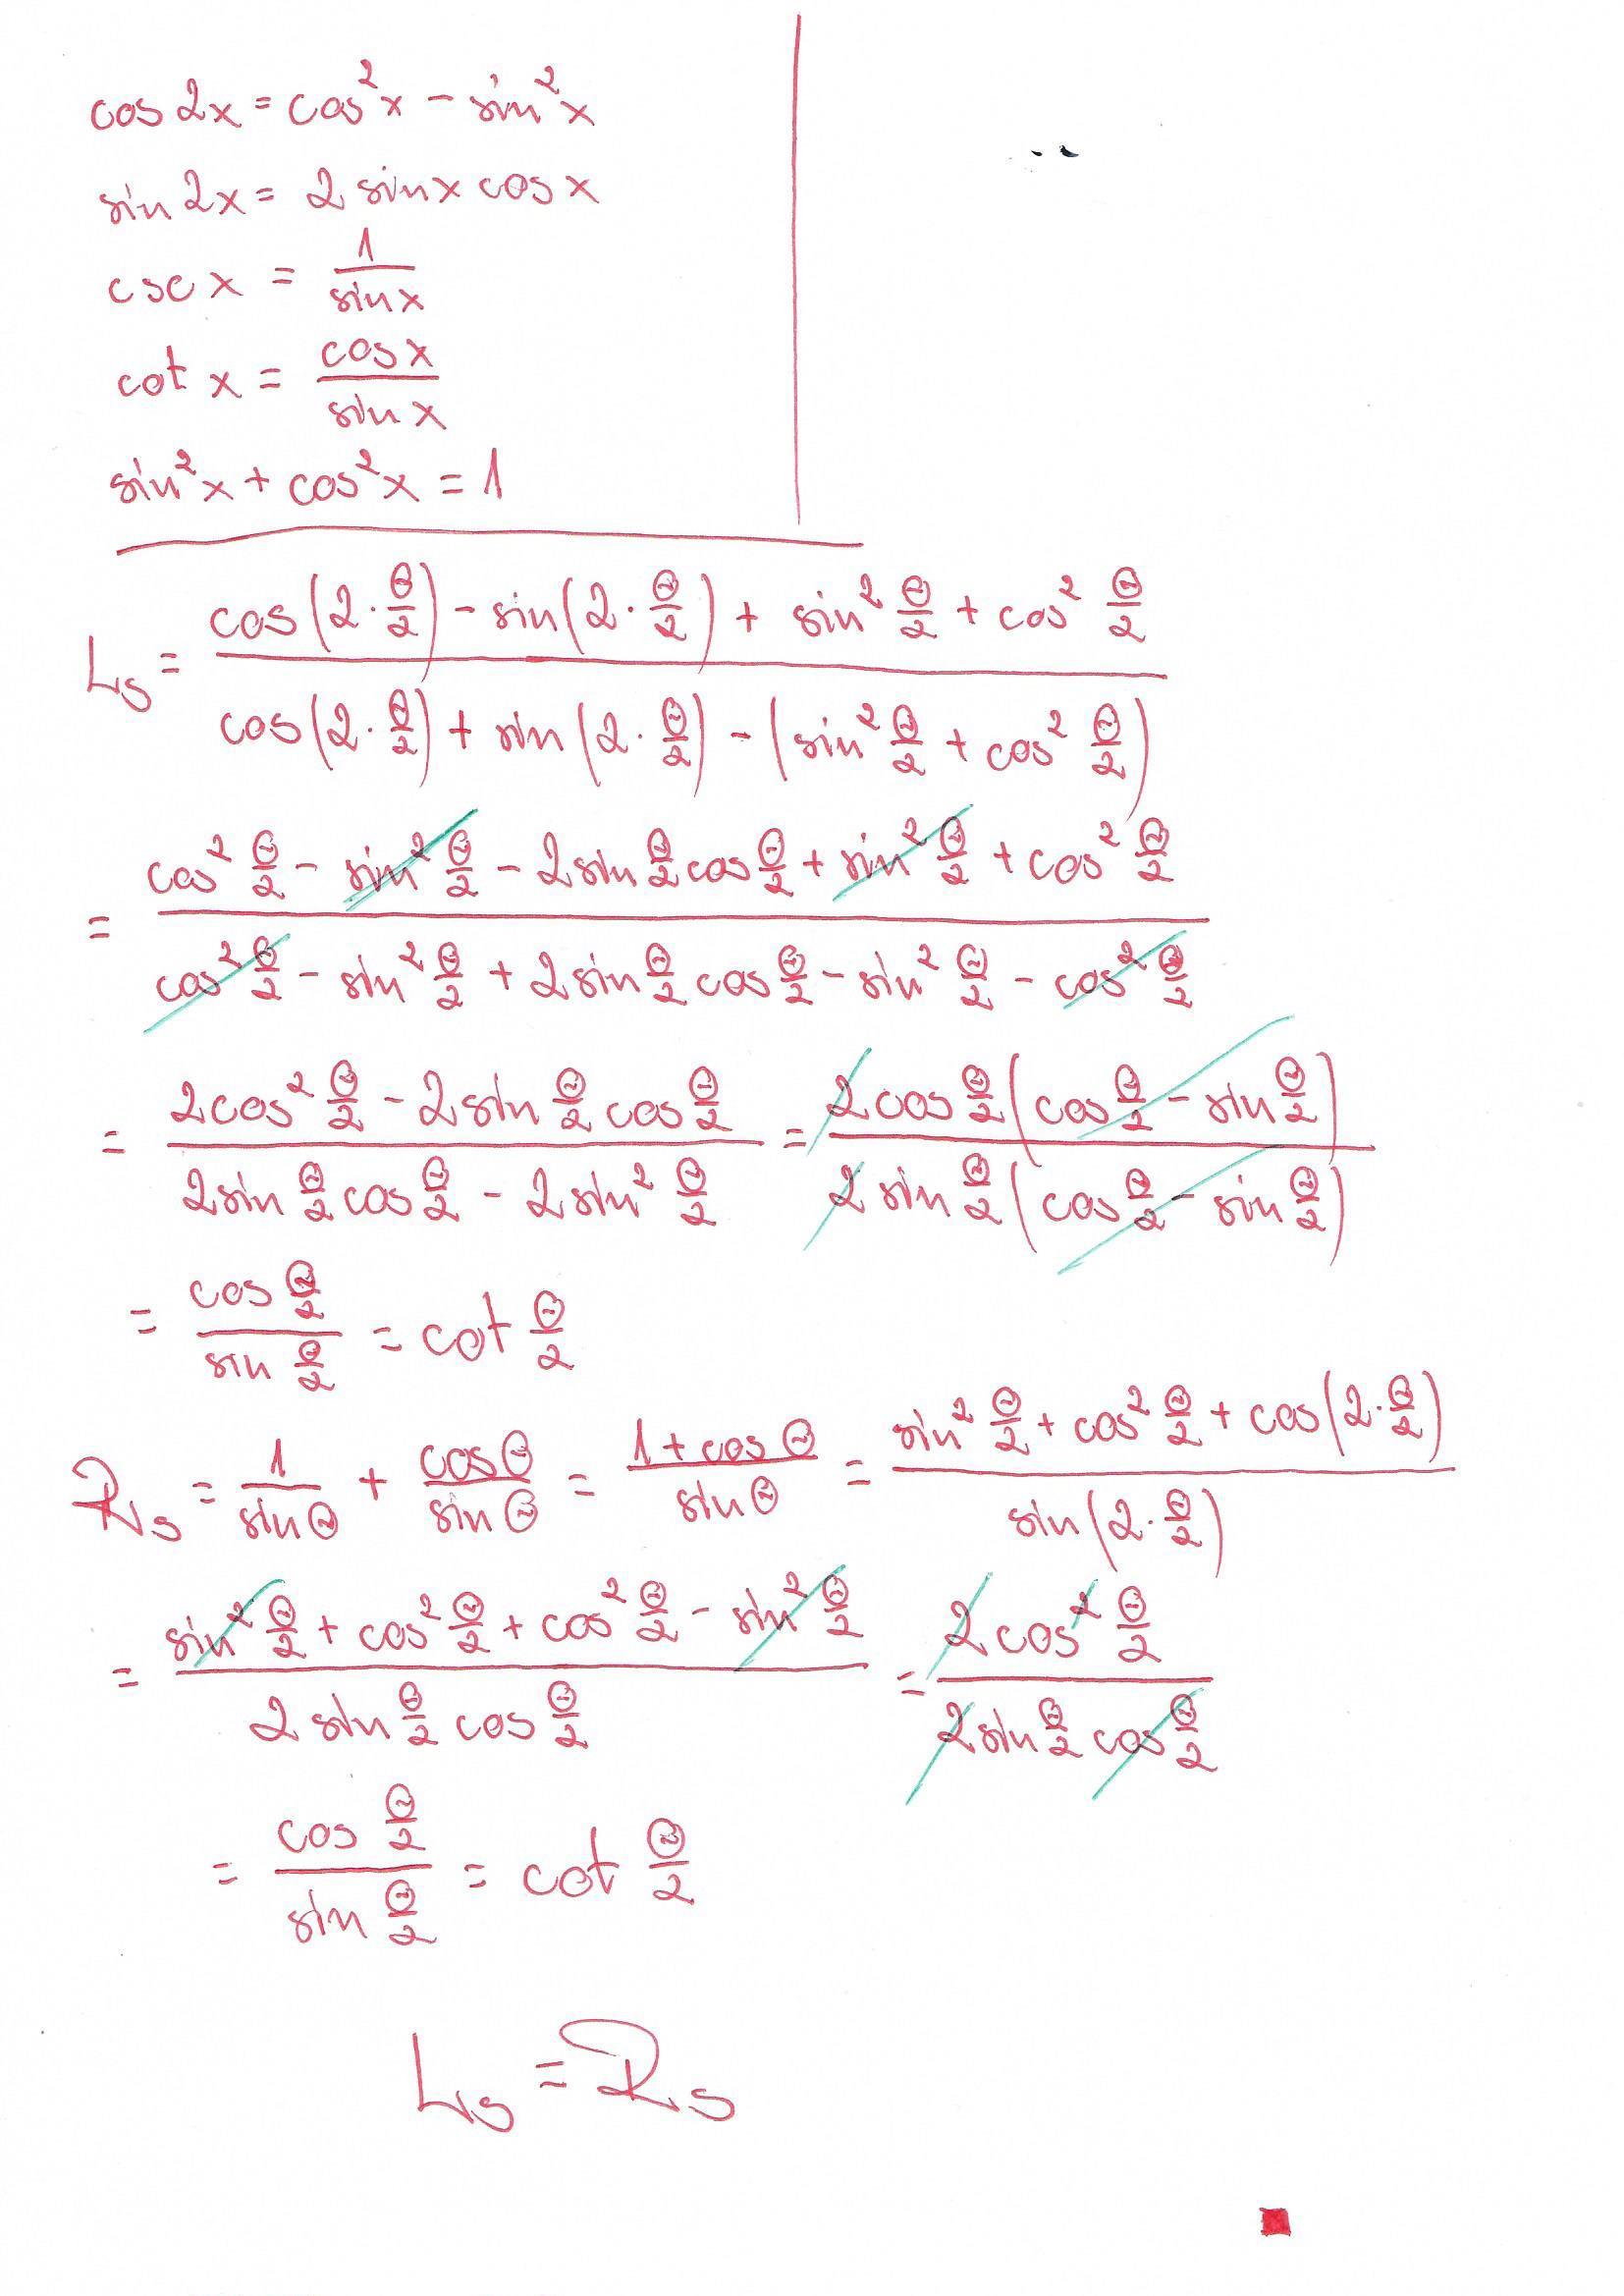 cos 2x = cos²x - sin²x
sin 2x = 2 sin x cos x
csc x = 1/sin x
cot x = cos x/sin x
sin²x + cos²x = 1
Ls = (cos(2·Θ/2) - sin(2·Θ/2) + sin² Θ/2 + cos² Θ/2)/(cos(2·Θ/2) + sin(2·Θ/2) - (sin² Θ/2 + cos² Θ/2))
= (cos² Θ/2 - sin² Θ/2 - 2 sin Θ/2 cos Θ/2 + sin² Θ/2 + cos² Θ/2)/(cos² Θ/2 - sin² Θ/2 + 2 sin Θ/2 cos Θ/2 - sin² Θ/2 - cos² Θ/2)
= (2cos² Θ/2 - 2 sin Θ/2 cos Θ/2)/(2 sin Θ/2 cos Θ/2 - 2 sin² Θ/2) = (2 cos Θ/2 (cos Θ/2 - sin Θ/2))/(2 sin Θ/2 (cos Θ/2 - sin Θ/2))
= (cos Θ/2)/(sin Θ/2) = cot Θ/2
Rs = 1/sin Θ + cos Θ/sin Θ = (1 + cos Θ)/sin Θ = (sin² Θ/2 + cos² Θ/2 + cos(2·Θ/2))/(sin(2·Θ/2))
= (sin² Θ/2 + cos² Θ/2 + cos² Θ/2 - sin² Θ/2)/(2 sin Θ/2 cos Θ/2) = (2 cos² Θ/2)/(2 sin Θ/2 cos Θ/2)
= (cos Θ/2)/(sin Θ/2) = cot Θ/2
Ls = Rs